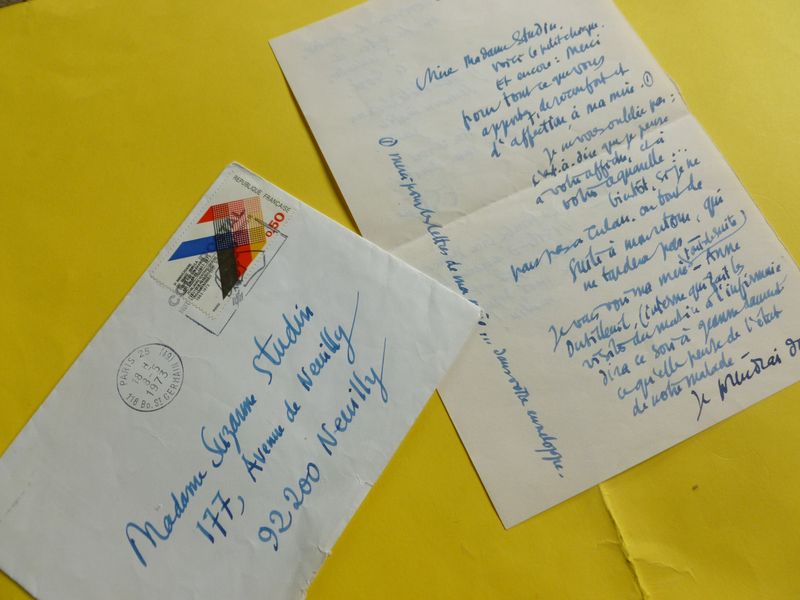 REPUBLIQUE FRANÇAISE
0,50
PARIS 25 (19)
18 H
3-5
1973
118 BD. ST GERMAIN
Madame Suzanne Studin
177, Avenue de Neuilly
92200 Neuilly
Madame Studin,
voici le petit chèque.
Et encore : merci
pour tout ce que vous
apportez, de réconfort et
d'affection à ma mère. ①
Je n'vous oublie pas :
c'est-à-dire que je pense
à votre affiche, et à
votre aquarelle ...
bientôt, si je ne
pars pas à Tulan, ou tout de
suite à mon retour, qui
ne tardera pas –
(tout de suite)
Je vais voir ma mère – Anne
Dutilleul, (interne qui fait les
visites du matin à l'infirmerie
dira ce soir à
ce qu'elle pense de l'état
de votre malade –
Je
① merci pour les lettres de ma ... dans votre enveloppe.